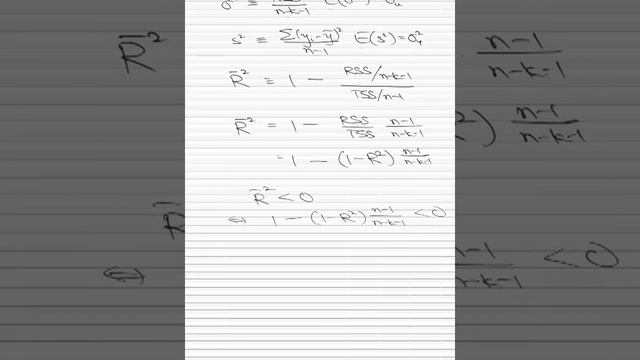 σ̂² = RSS/(n-k-1) E(σ̂²) = σᵤ²
s² = Σ(yᵢ-ȳ)²/(n-1) E(s²) = σᵧ²
R̄² = 1 - (RSS/n-k-1)/(TSS/n-1)
R̄² = 1 - RSS/TSS (n-1)/(n-k-1)
= 1 - (1-R²) (n-1)/(n-k-1)
R̄² < 0
⇔ 1 - (1-R²) (n-1)/(n-k-1) < 0